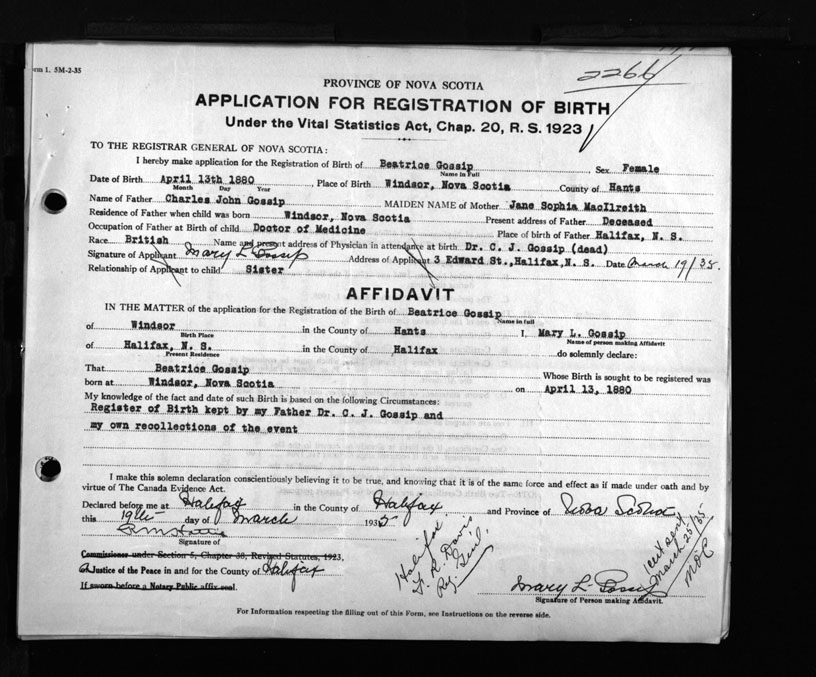 orm 1. 5M-2-35
2266
PROVINCE OF NOVA SCOTIA
APPLICATION FOR REGISTRATION OF BIRTH
Under the Vital Statistics Act, Chap. 20, R. S. 1923
TO THE REGISTRAR GENERAL OF NOVA SCOTIA:
I hereby make application for the Registration of Birth of Beatrice Gossip, Sex Female
Name in Full
Date of Birth April 13th 1880, Place of Birth Windsor, Nova Scotia County of Hants
Month Day Year
Name of Father Charles John Gossip MAIDEN NAME of Mother Jane Sophia MacIlreith
Residence of Father when child was born Windsor, Nova Scotia Present address of Father Deceased
Occupation of Father at Birth of child Doctor of Medicine Place of birth of Father Halifax, N. S.
Race British Name and present address of Physician in attendance at birth Dr. C. J. Gossip (dead)
Signature of Applicant Mary L. Gossip Address of Applicant 3 Edward St., Halifax, N. S. Date March 19/35.
Relationship of Applicant to child Sister
AFFIDAVIT
IN THE MATTER of the application for the Registration of the Birth of Beatrice Gossip
Name in full
of Windsor in the County of Hants I, Mary L. Gossip
Birth Place Name of person making Affidavit
of Halifax, N. S. in the County of Halifax do solemnly declare:
Present Residence
That Beatrice Gossip Whose Birth is sought to be registered was
born at Windsor, Nova Scotia on April 13, 1880
My knowledge of the fact and date of such Birth is based on the following Circumstances:
Register of Birth kept by my Father Dr. C. J. Gossip and
my own recollections of the event
I make this solemn declaration conscientiously believing it to be true, and knowing that it is of the same force and effect as if made under oath and by
virtue of The Canada Evidence Act.
Declared before me at Halifax in the County of Halifax and Province of Nova Scotia
this 19th day of March 1935
Signature of
Commissioner under Section 5, Chapter 38, Revised Statutes, 1923,
A Justice of the Peace in and for the County of Halifax
If sworn before a Notary Public affix seal.
Halifax
F. R. Davis
Reg. Genl.
1 cert sent
March 25/35
Mary L. Gossip
Signature of Person making Affidavit.
For Information respecting the filling out of this Form, see Instructions on the reverse side.